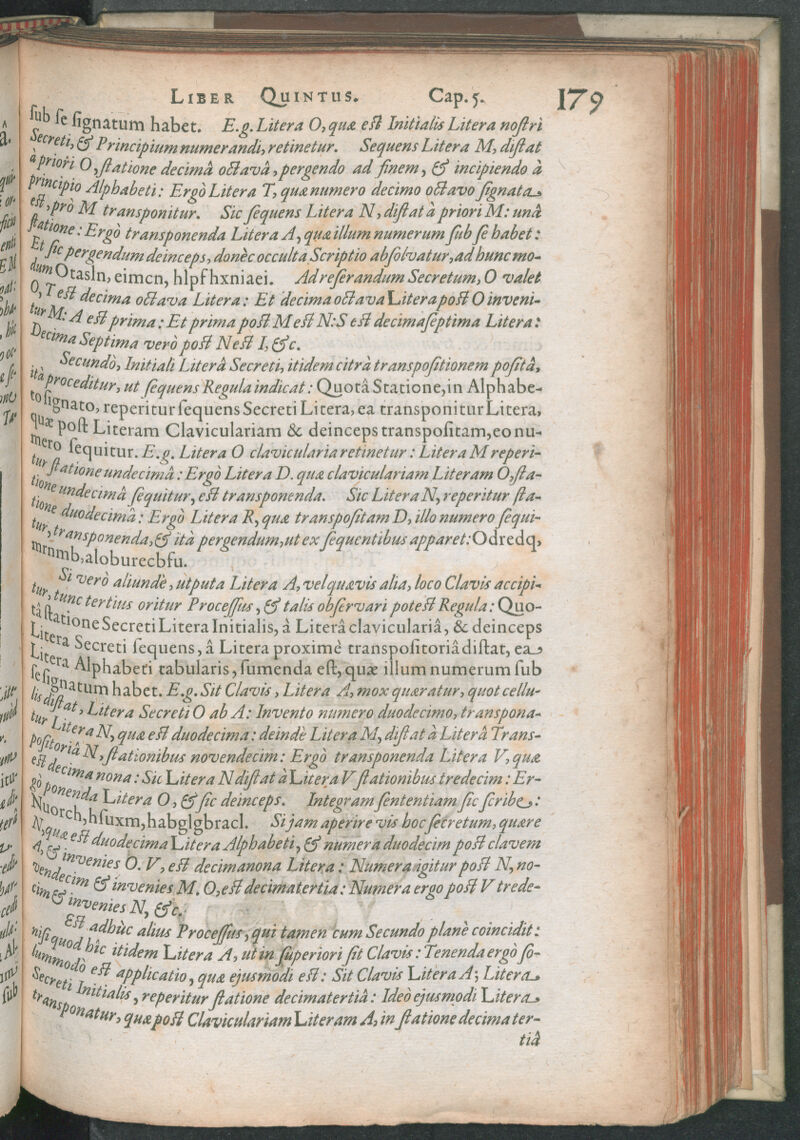 LIBER QUINTUS. Cap. 5. 179
ſub ſe ſignatum habet. E.g. Litera O, quæ eſt Initialis Litera noſtri
Secreti, & Principium numerandi, retinetur. Sequens Litera M, diſtat
à priori O, ſtatione decimâ octavâ, pergendo ad finem, & incipiendo à
principio Alphabeti: Ergò Litera T, quæ numero decimo octavo ſignata
eſt, pro M transponitur. Sic ſequens Litera N, diſtat à priori M: unâ
ſtatione: Ergò transponenda Litera A, quæ illum numerum ſub ſe habet:
Et ſic pergendum deinceps, donèc occulta Scriptio abſolvatur, ad hunc mo-
dum Otasln, eimcn, hlpfhxniaei. Ad referandum Secretum, O valet
O, T eſt decima octava Litera: Et decima octava Litera poſt O inveni-
tur M: A eſt prima: Et prima poſt M eſt N: S eſt decimaſeptima Litera:
Decima Septima verò poſt N eſt I, &c.
Secundò, Initiali Literâ Secreti, itidem citrà transpoſitionem poſitâ,
ità proceditur, ut ſequens Regula indicat: Quotâ Statione, in Alphabe-
to ſignato, reperitur ſequens Secreti Litera, ea transponitur Litera,
quæ poſt Literam Claviculariam & deinceps transpoſitam, eo nu-
mero ſequitur. E.g. Litera O clavicularia retinetur: Litera M reperi-
tur ſtatione undecimâ: Ergò Litera D. quæ claviculariam Literam O, ſta-
tione undecimâ ſequitur, eſt transponenda. Sic Litera N, reperitur ſta-
tione duodecimâ: Ergò Litera R, quæ transpoſitam D, illo numero ſequi-
tur, transponenda, & ità pergendum, ut ex ſequentibus apparet: Odredq,
mrnmb, aloburecbfu.
Si verò aliundè, utputa Litera A, vel quævis alia, loco Clavis accipi-
tur, tunc tertius oritur Proceſſus, & talis obſervari poteſt Regula: Quo-
tâ ſtatione Secreti Litera Initialis, à Literâ claviculariâ, & deinceps
Litera Secreti ſequens, â Litera proximè transpoſitoriâ diſtat, ea
Litera Alphabeti tabularis, ſumenda eſt, quæ illum numerum ſub
ſe ſignatum habet. E.g. Sit Clavis, Litera A, mox quæratur, quot cellu-
lis diſtat, Litera Secreti O ab A: Invento numero duodecimo, transpona-
tur Litera N, quæ eſt duodecima: deindè Litera M, diſtat à Literâ Trans-
poſitoriâ N, ſtationibus novendecim: Ergò transponenda Litera V, quæ
eſt decima nona: Sic Litera N diſtat à Litera V ſtationibus tredecim: Er-
gò ponenda Litera O, & ſic deinceps. Integram ſententiam ſic ſcribe:
Nuorch, hſuxm, habglgbracl. Si jam aperire vis hoc ſecretum, quære
N, quæ eſt duodecima Litera Alphabeti, & numera duodecim poſt clavem
A, & invenies O. V, eſt decimanona Litera: Numera igitur poſt N, no-
vendecim & invenies M. O, eſt decimatertia: Numera ergo poſt V trede-
cim & invenies N, &c.
Eſt adhùc alius Proceſſus, qui tamen cum Secundo planè coincidit:
niſi quod hîc itidem Litera A, ut in ſuperiori fit Clavis: Tenenda ergò ſo-
lummodo eſt applicatio, quæ ejusmodi eſt: Sit Clavis Litera A; Litera
Secreti Initialis, reperitur ſtatione decimatertiâ: Ideò ejusmodi Litera
transponatur, quæ poſt Claviculariam Literam A, in ſtatione decima ter-
tiâ